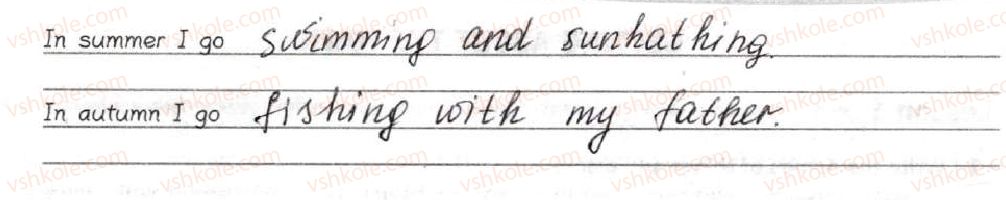 In summer I go swimming and sunbathing.
In autumn I go fishing with my father.